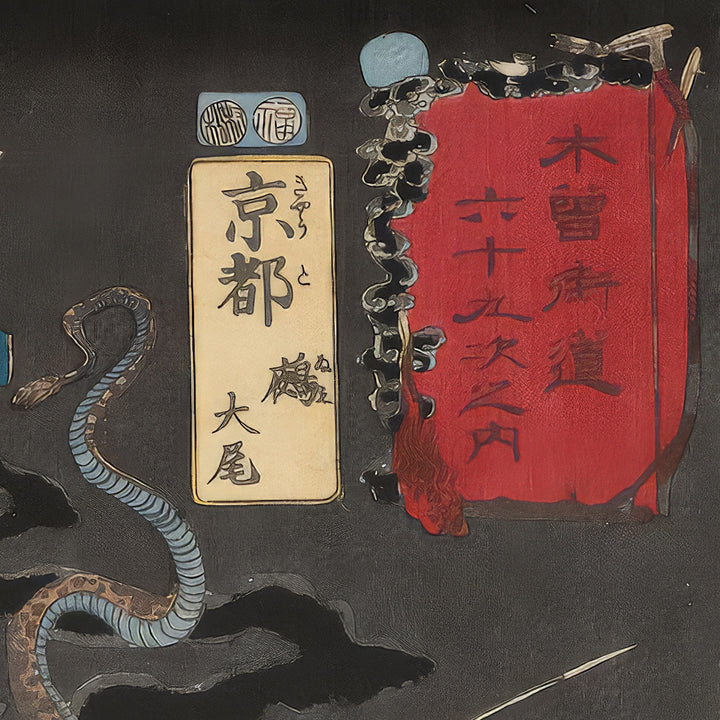 木曽街道
六十九次之内
福
京都
きやうと
鵺
ぬえ
大尾